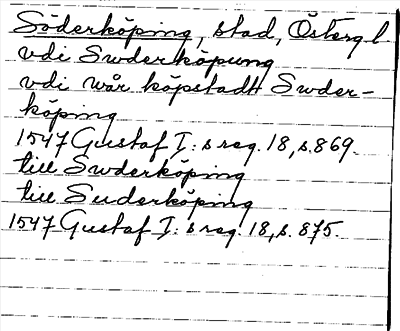 Söderköping, stad, Österg l
vdi Swderköpung
vdi wår köpstadh Swder-
köping
1547 Gustaf I:s reg. 18, s. 869.
till Swderköping
till Suderköping
1547 Gustaf I:s reg. 18, s. 875.